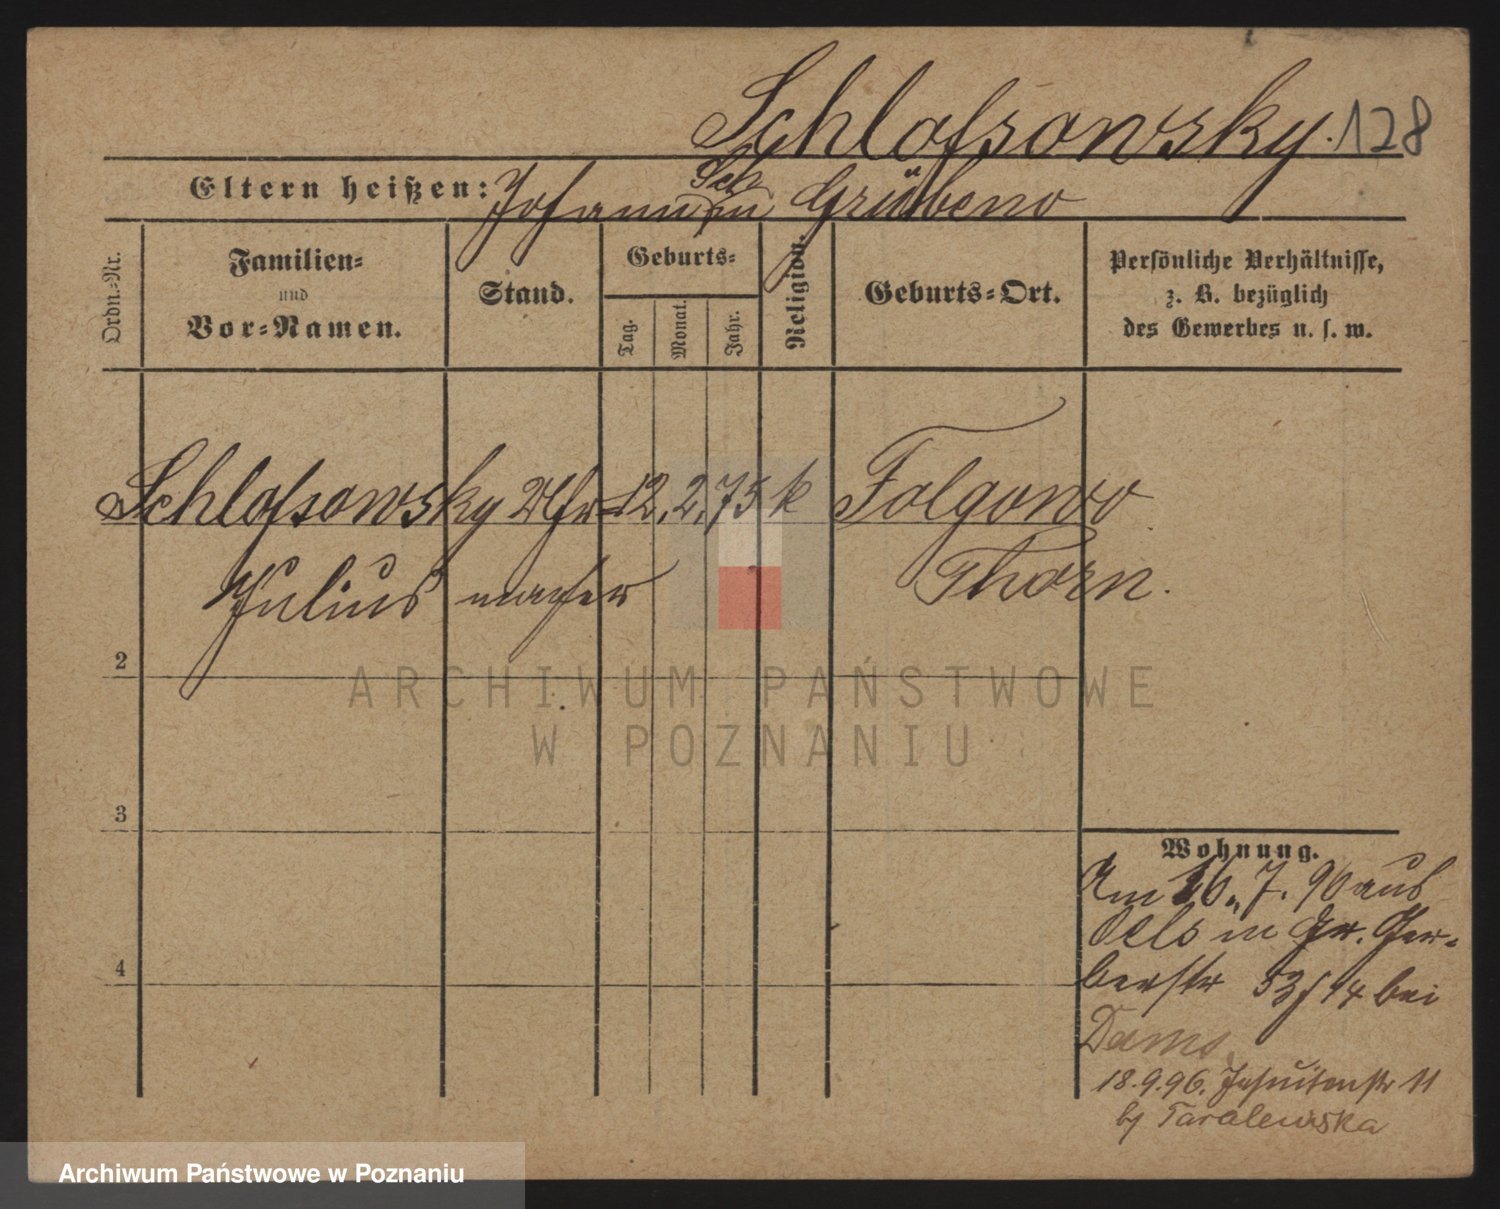 Schlofsowsky. 128
Eltern heißen: Johann Sch in Grübeno
Ordn.-Nr.
Familien-
und
Vor-Namen.
Stand.
Geburts-
Tag.
Monat.
Jahr.
Religion.
Geburts-Ort.
Persönliche Verhältnisse,
z. B. bezüglich
des Gewerbes u. s. w.
Schlofsowsky Uhr- 12. 2. 75 k Folgowo
Julius macher Thorn.
2
3
4
Wohnung.
Am 16. 7. 96 aus
Oels in Gr. Ger-
berstr 53/14 bei
Dams
18.9.96. Jesuitenstr 11
bj Taralewska
ARCHIWUM PAŃSTWOWE
W POZNANIU
Archiwum Państwowe w Poznaniu